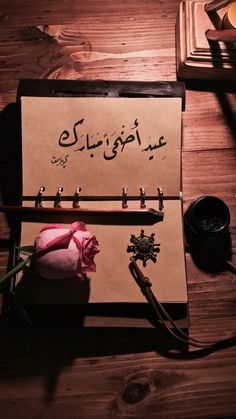 عيد أضحى مبارك